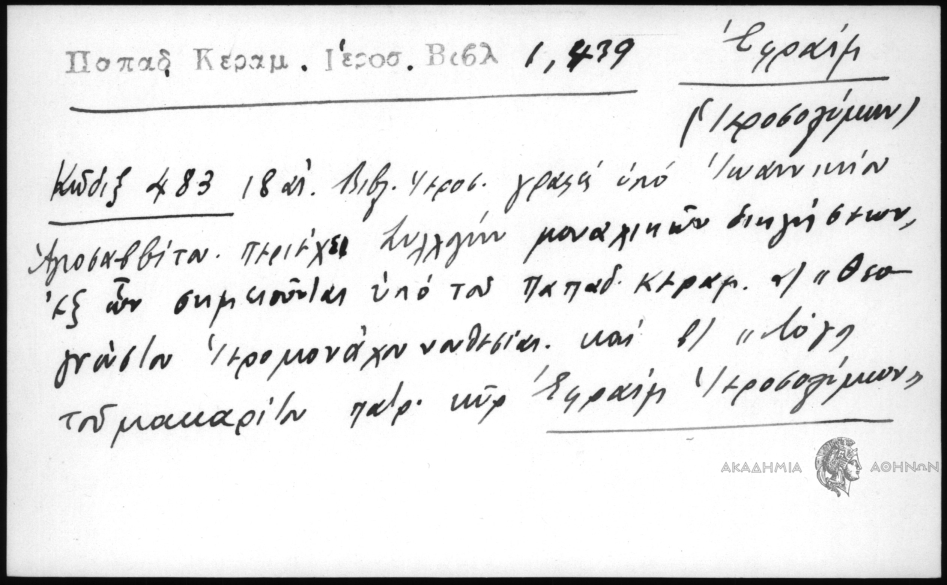 Παπαδ Κεραμ. Ιέροσ. Βιβλ 1, 439
Ἐφραίμ
(Ἱεροσολύμων)
Κῶδιξ 483 18 αἰ. Βιβλ. Ἱεροσ. γραφείς ὑπό Ἰωαννικίου
Ἁγιοσαββίτου. περιέχει συλλογήν μοναχικῶν διηγήσεων,
ἐξ ὧν σημειοῦνται ὑπό τοῦ Παπαδ. Κεραμ. α) "Θεο-
γνώστου Ἱερομονάχου νουθεσίαι. καί β) "Λόγοι
τοῦ μακαρίτου πατρ. κῦρ Ἐφραίμ Ἱεροσολύμων"
ΑΚΑΔΗΜΙΑ ΑΘΗΝΩΝ